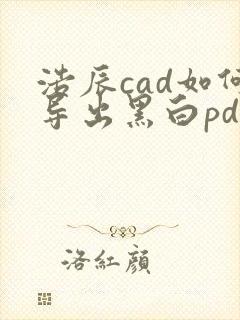 浩辰cad如何
导出黑白pd
洛紅顔